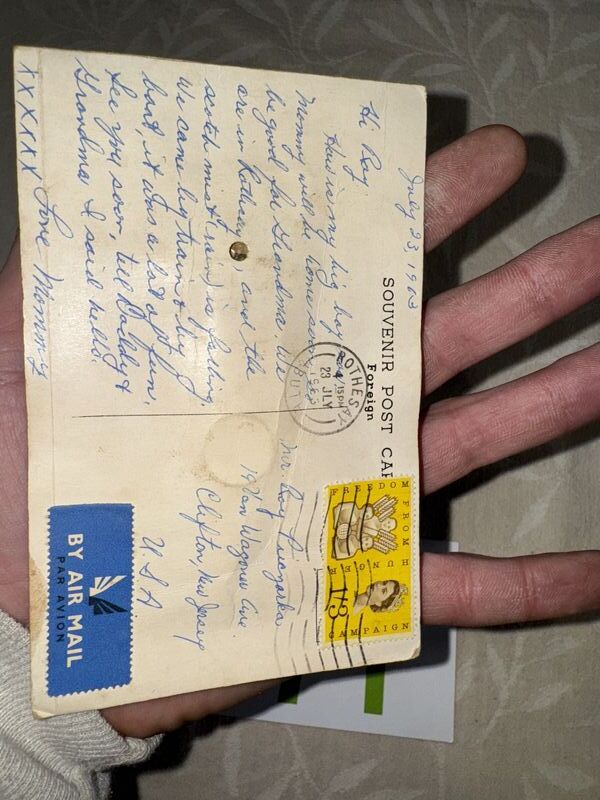 SOUVENIR POST CAR
Foreign
July 23, 1963
Hi Roy
How is my big boy
Mommy will be home soon,
be good for Grandma. We
are in Rothesay, and the
scotch mist (rain) is falling.
We came by train & by
boat, it was a lot of fun,
See you soon, tell Daddy &
Grandma I said hello.
Love Mommy
XXXXXX
ROTHESAY
4 15PM
23 JLY
1963
BUTE
FREEDOM FROM
HUNGER
CAMPAIGN
1/3
Mr. Roy
19 Van Wagoner Ave
Clifton, New Jersey
U.S.A
BY AIR MAIL
PAR AVION